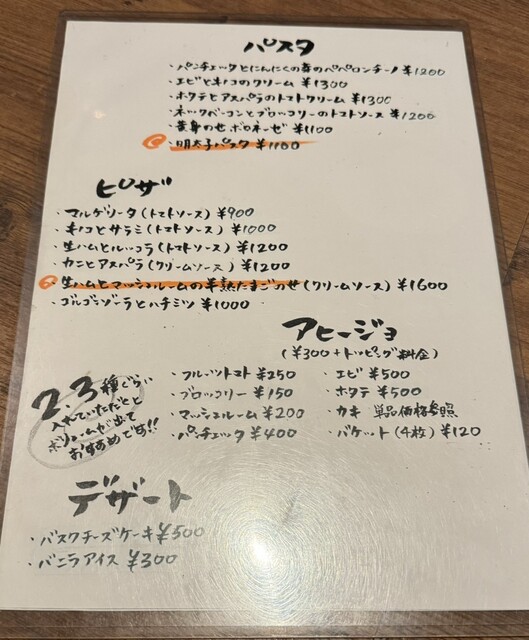 パスタ
・パンチェッタとにんにくの芽のペペロンチーノ ¥1200
・エビとキノコのクリーム ¥1300
・ホタテとアスパラのトマトクリーム ¥1300
・ネックベーコンとブロッコリーのトマトソース ¥1200
・黄身のせボロネーゼ ¥1100
・明太子パスタ ¥1100
ピザ
・マルゲリータ(トマトソース) ¥900
・キノコとサラミ(トマトソース) ¥1000
・生ハムとルッコラ(トマトソース) ¥1200
・カニとアスパラ(クリームソース) ¥1200
・生ハムとマッシュルームの半熟たまごのせ(クリームソース) ¥1600
・ゴルゴンゾーラとハチミツ ¥1000
アヒージョ
(¥300+トッピング料金)
・フルーツトマト ¥250
・ブロッコリー ¥150
・マッシュルーム ¥200
・パンチェッタ ¥400
・エビ ¥500
・ホタテ ¥500
・カキ 単品価格参照
・バケット(4枚) ¥120
2、3種ぐらい
入れていただくと
ボリュームが出て
おすすめです!!
デザート
・バスクチーズケーキ ¥500
・バニラアイス ¥300